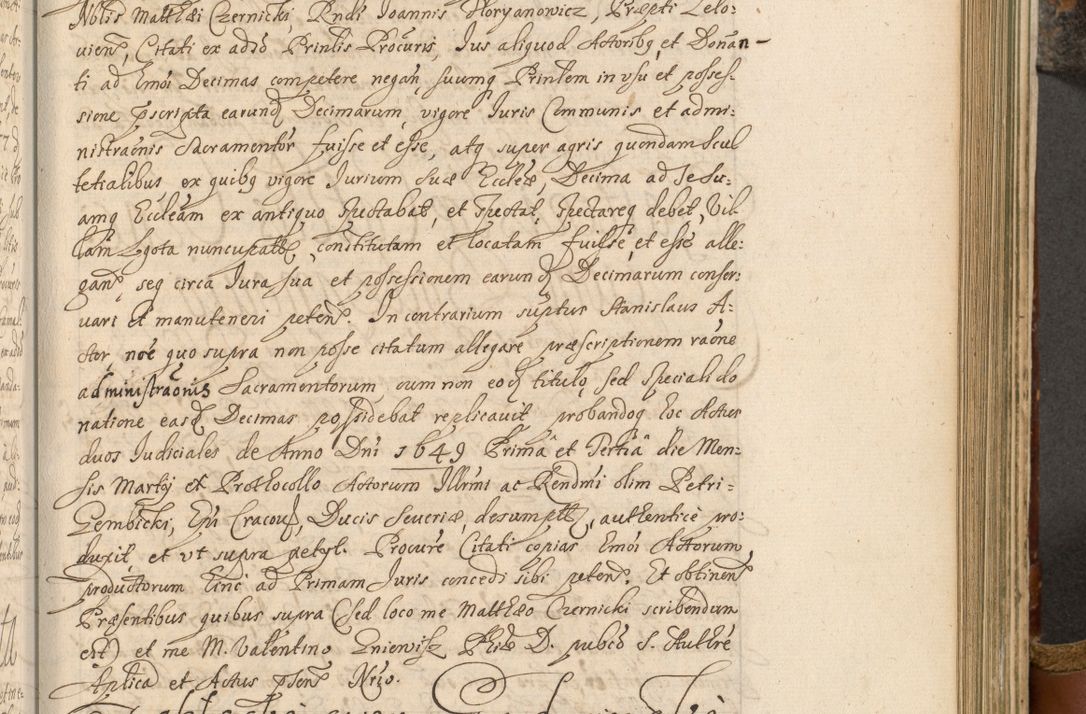 Nobis Matthæi Czernicki, Rndi Joannis Floryanowicz, Præpti Lelo:
vien, Citati ex adió Prinlis Procuris, Jus aliquod Actoribq et Donan-
ti ad Emói Decimas competere negan, suumq Prinlem in usu et posses-
sione pscripta earund Decimarum, vigore Juris Communis et admi:
nistraónis Sacramentor fuisse et esse, atq super agris quondam Scul
tetialibus ex quibq vigore Jurium suæ Eccleæ, Decima ad Jesu:
amq Eccleam ex antiquo spectabat, et spectat, spectareq debet, Vil:
lam Lgota nuncupath, constitutam et locatam fuisse, et esse alle:
gan, seq circa Jura sua et possessionem earund Decimarum conser:
vari et manuteneri peten. In contrarium suptus Stanislaus A:
ctor noé quo supra non posse citatum allegare præscriptionem raóne
administraónis Sacramentorum cum non eod titulo, sed speciali do
natione easd Decimas possidebat replicavit probandoq hoc Actus
duos Judiciales de Anno Dni 1649 Prima et Tertia die Men:
sis Martij ex Prothocollo Actorum Illrmi ac Rendmi olim Petri:
Gembicki, Epi Cracov, Ducis Severiæ, desumptt, authentice pro:
duxit, et ut supra petyt. Procure Citati copias Emói Actorum
productorum hinc ad Primam Juris concedi sibi peten. Et obtinen
Præsentibus quibus supra (sed loco me Matthæo Czernicki scribendum
est) et me M. Valentino Gniewisz Phiæ D. pubco S. Authre
Aplica et Actus psen Nrio.